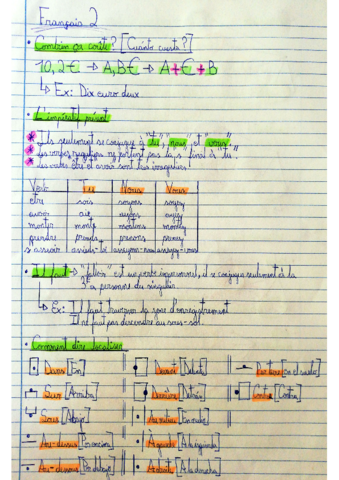 Français 2
• Combien ça coûte? [Cuánto cuesta?]
10,2€ → A,B€ → A + € + B
↳ Ex: Dix euro deux
• L'impératif présent
* Ils seulement se conjugue à "tu", "nous" et "vous".
* Les verbes reguliers ne portent pas la s final à "tu"
* Les verbes être et avoir sont les irreguliers
Verbe Tu Nous Vous
être sois soyons soyez
avoir aie ayons ayez
monter monte montons montez
prendre prends prenons prenez
s'asseoir assieds-toi asseyons-nous asseyez-vous
• Il faut → "falloir" est un verbe impersonnel, il se conjugue seulement à la
3ª personne du singulier
↳ Ex: Il faut traverser la zone d'enregistrement
Il ne faut pas descendre au sous-sol.
• Comment dire localiser
Dans [En] Devant [Delante] Derrière [En el suelo]
Sur [Arriba] Derrière [Detrás] Contre [Contra]
Sous [Abajo] Au milieu [En medio]
Au-dessus [Encima] À gauche [A la izquierda]
Au-dessous [Debajo] À droite [A la derecha]